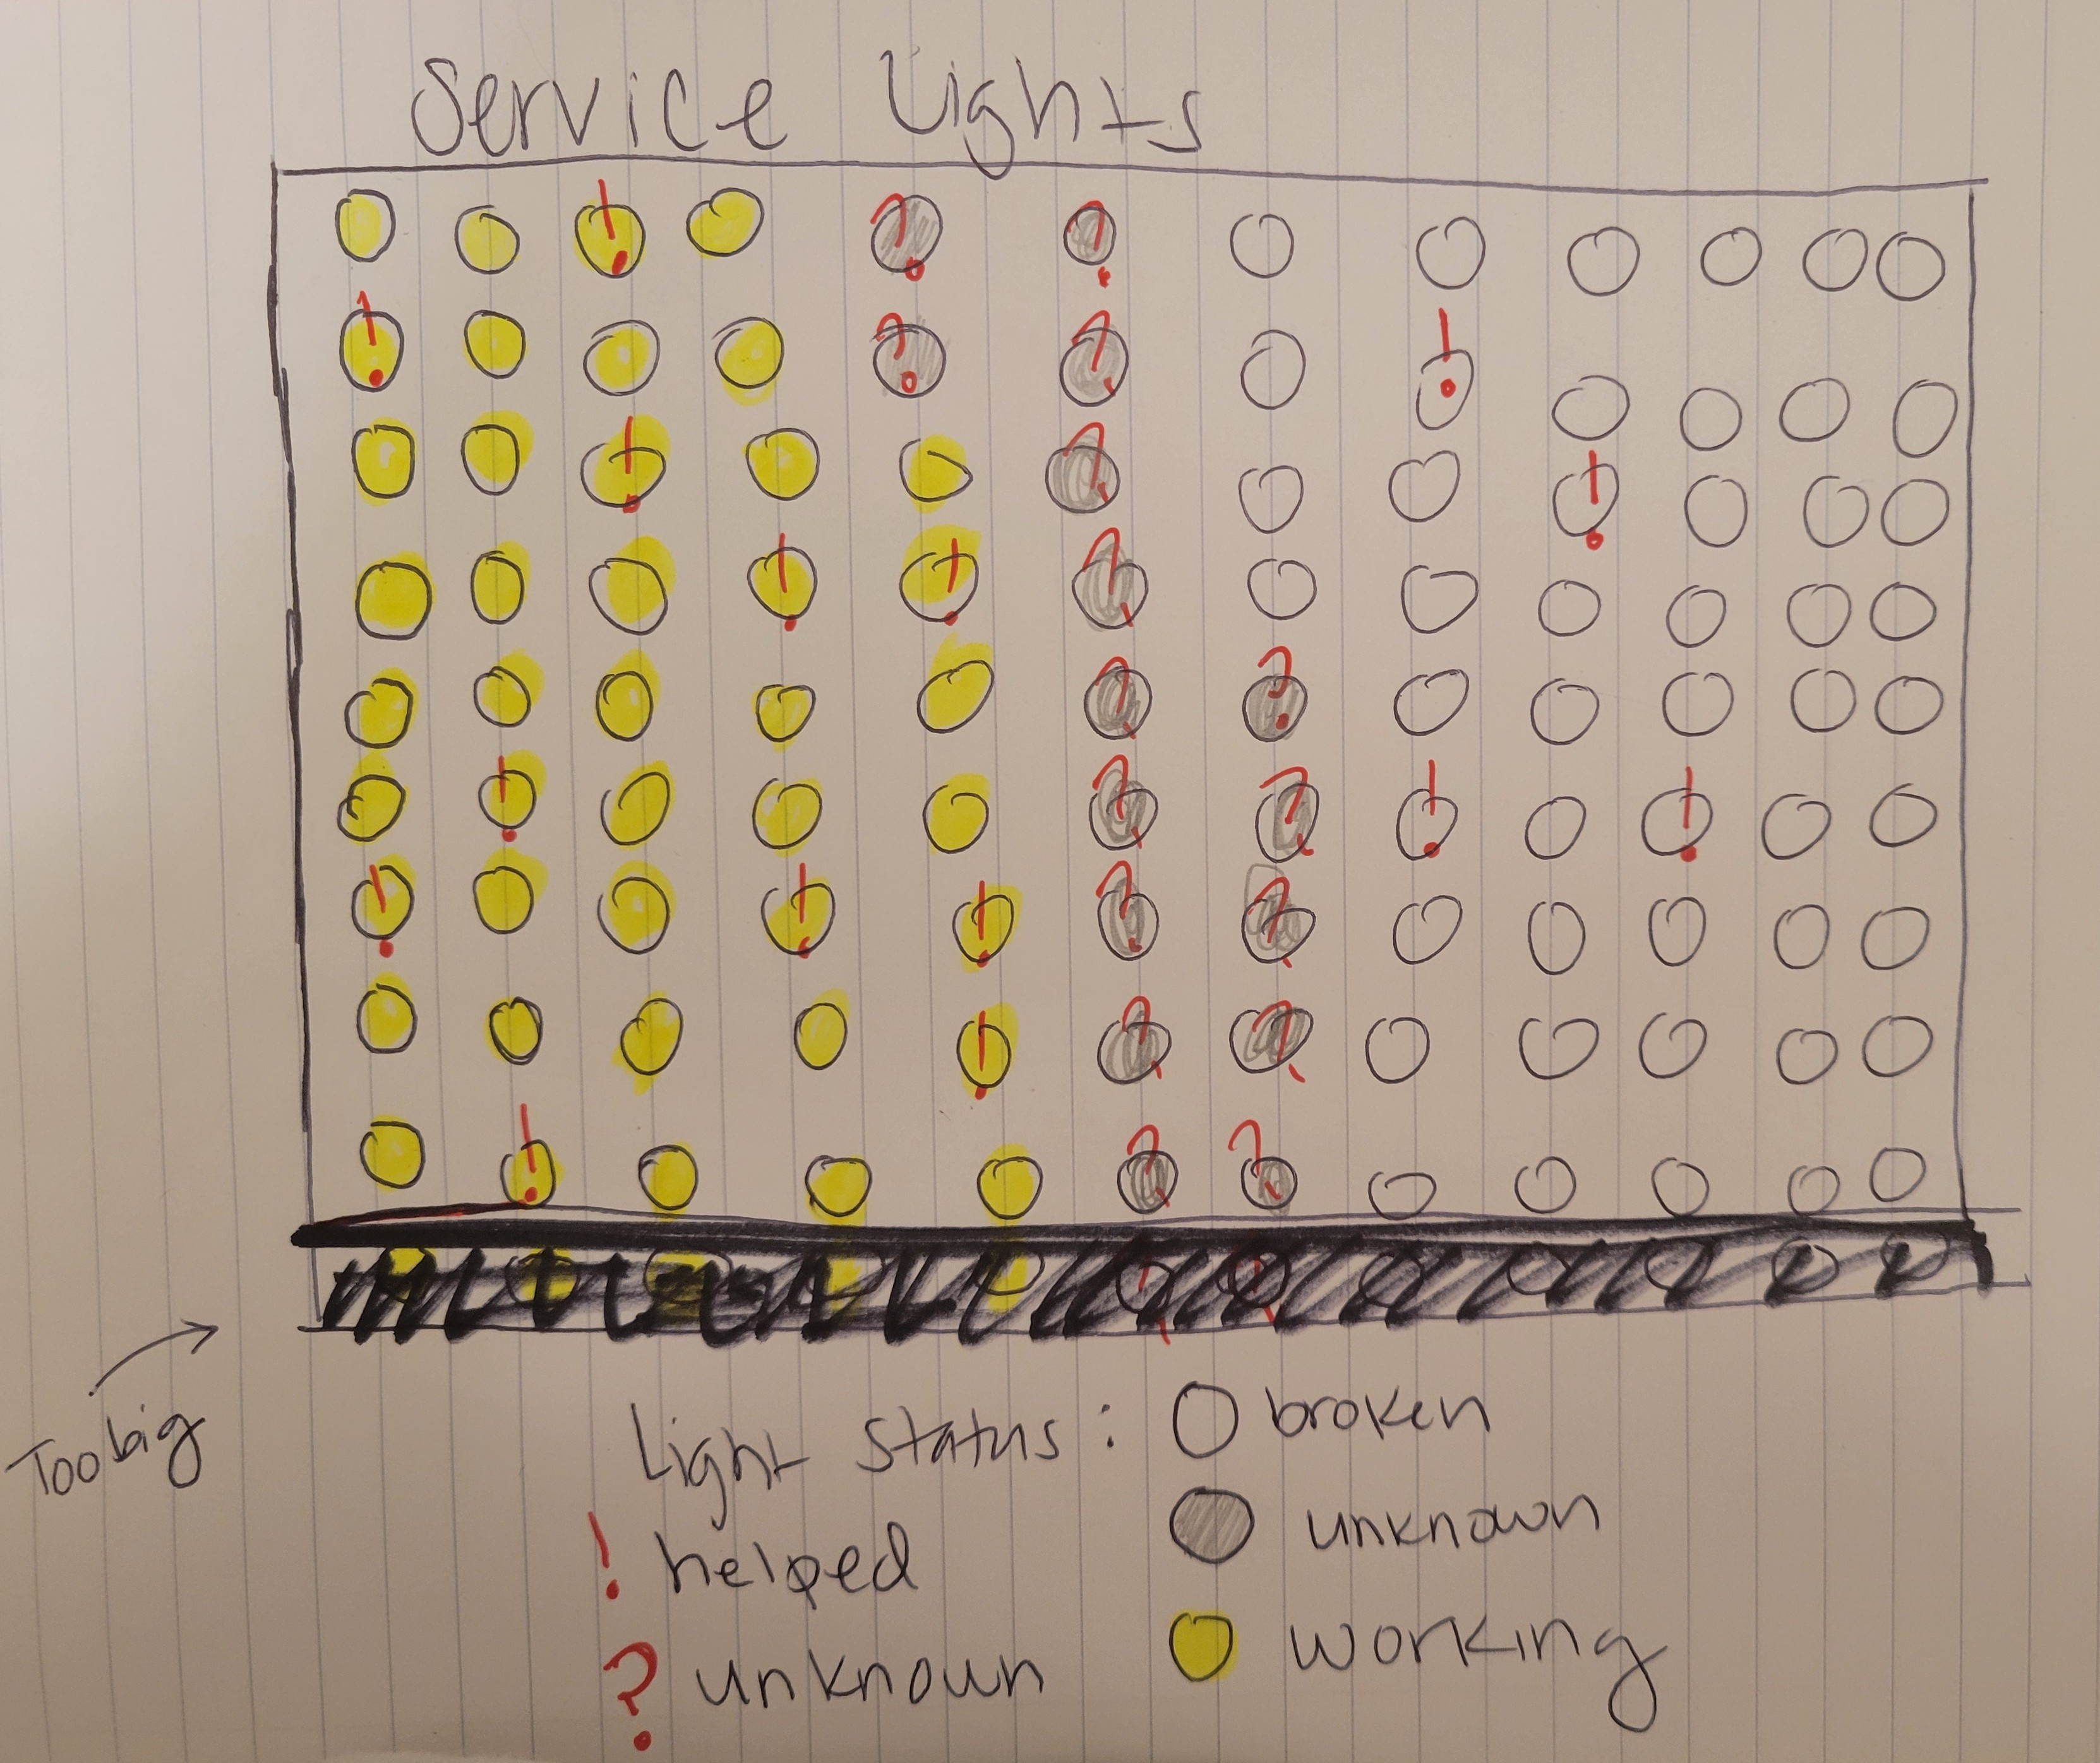 Service Lights
Too big
Light Status: broken
unknown
working
! helped
? unknown